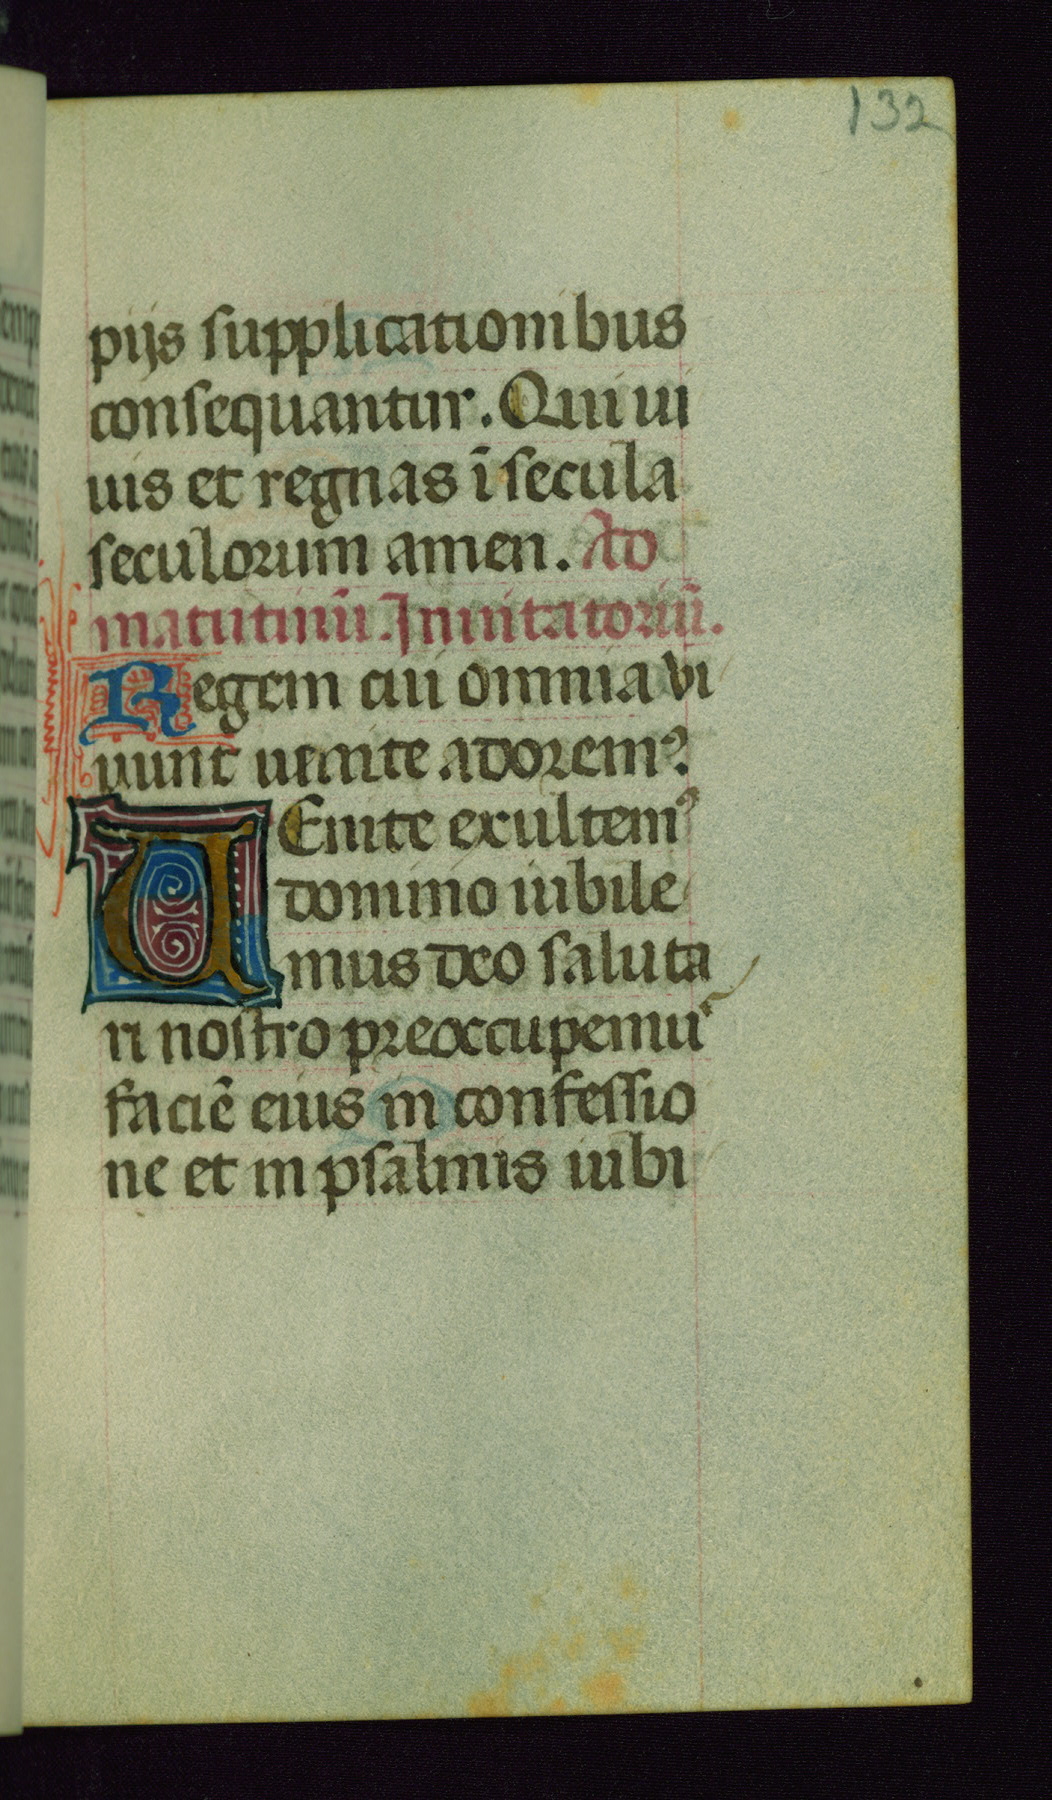 132
pijs supplicationibus
consequantur. Qui ui
uis et regnas ī secula
seculorum amen. Ad
matutinū. Inuitatoriū.
Regem cui omnia vi
uunt uenite adoremꝰ
UEnite exultemꝰ
domino iubile
mus deo saluta
ri nostro preoccupemus
faciē eius in confessio
ne et in psalmis iubi